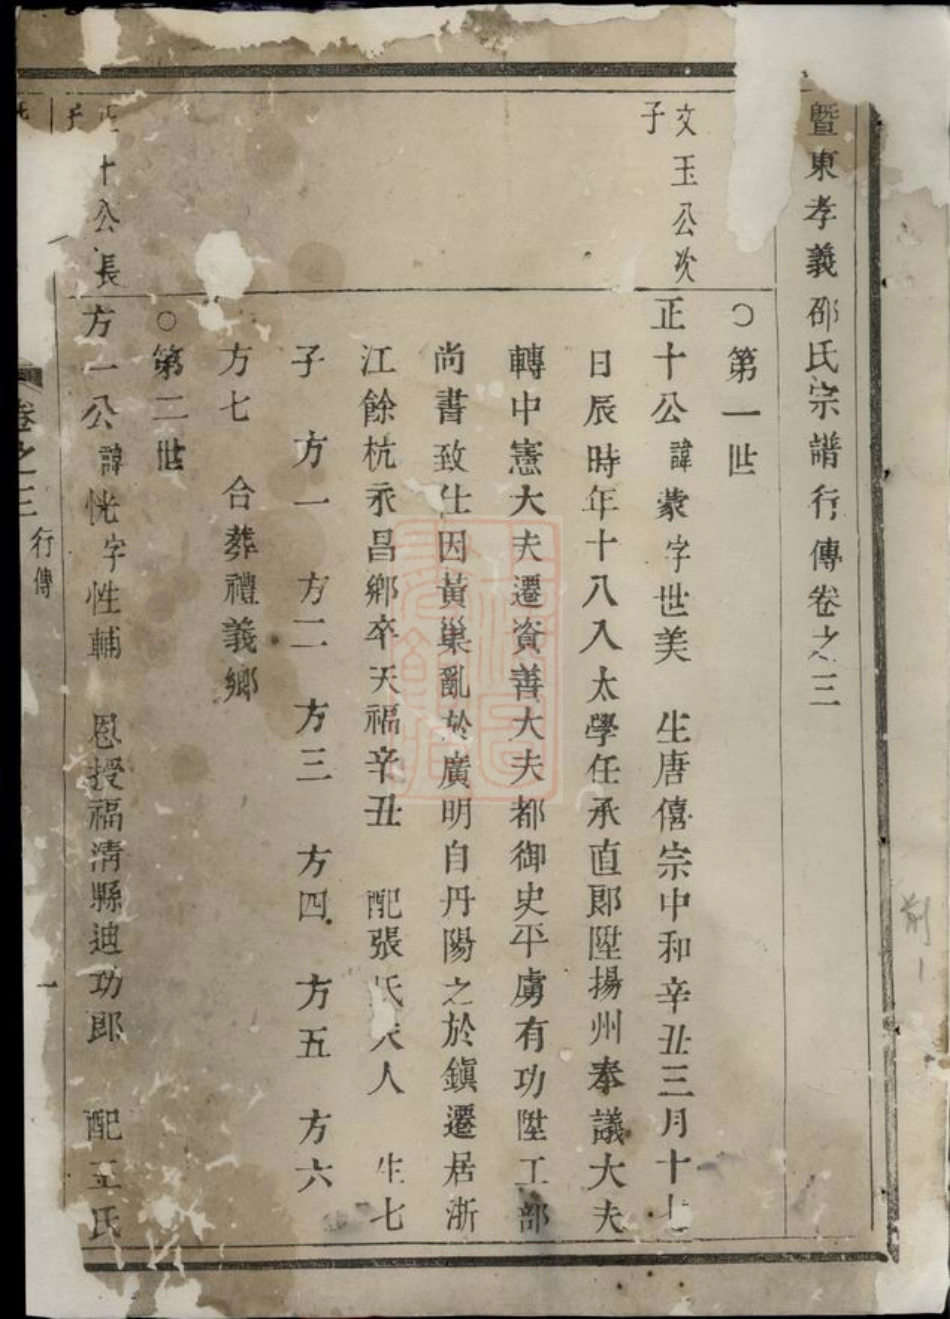 暨東孝義邵氏宗譜行傳卷之三
○第一世
文玉公次子
正十公諱蒙字世美 生唐僖宗中和辛丑三月十七
日辰時年十八入太學任承直郎陞揚州奉議大夫
轉中憲大夫遷資善大夫都御史平虜有功陞工部
尚書致仕因黃巢亂於廣明自丹陽之於鎭遷居浙
江餘杭永昌鄉卒天福辛丑 配張氏夫人 生七
子 方一 方二 方三 方四 方五 方六
方七 合葬禮義鄉
○第二世
正十公長子
方一公諱恍字性輔 恩授福清縣迪功郎 配王氏
卷之三 行傳 一